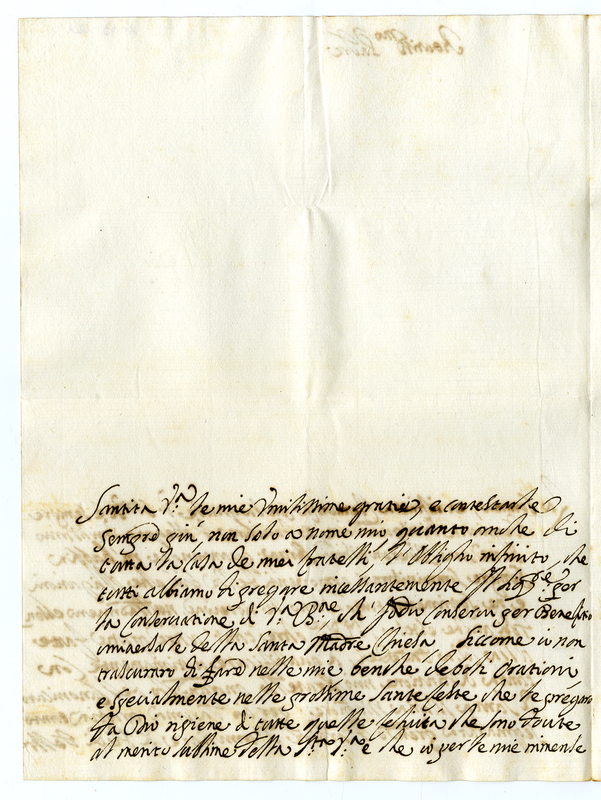 Santità V.ª le mie Umilissime gratie, e contestarle
sempre più, non solo a nome mio quanto anche di
tutta la Casa de miei fratelli, l'obbligo infinito, che
tutti abbiamo di pregare incessantemente per
la Conservatione di V.ª B.ne, che Iddio Conservi per Benefitio
universale della Santa Madre Chiesa, siccome io non
trascuraro di fare nelle mie benche deboli Orationi
e specialmente nelle prossime Sante feste che le prégaro
da Dio ripiene di tutte quelle felicità che sono dovute
al merito sublime della S.tà V.ª e che io per le mie immense